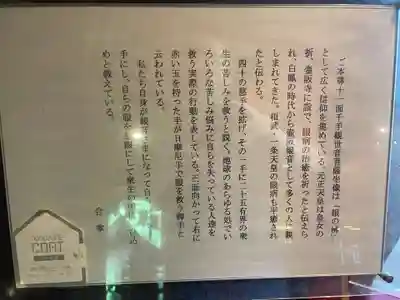 ご本尊十一面千手観世音菩薩坐像は「眼の佛」
として広く信仰を集めている。元正天皇は皇女の
折、壷阪寺に詣で、眼病の治癒を祈ったと伝えら
れ、白鳳の時代から壷阪観音として多くの人に親
しまれてきた。桓武、一条天皇の眼病も平癒され
たと伝わる。
四十の慈手を拡げ、その一手に二十五有界の衆
生の苦しみを救うと説く。地獄のあらゆる処でい
ろいろな苦しみ悩みに自らを失っている人達を
救う実際の行動を表している。正面向かって右に
赤い玉を持った手が日摩尼手で眼を救う御手と
云われている。
私たち自身が観音の手になって
手にし、自らの眼を
めと教えている。
合掌
COAT